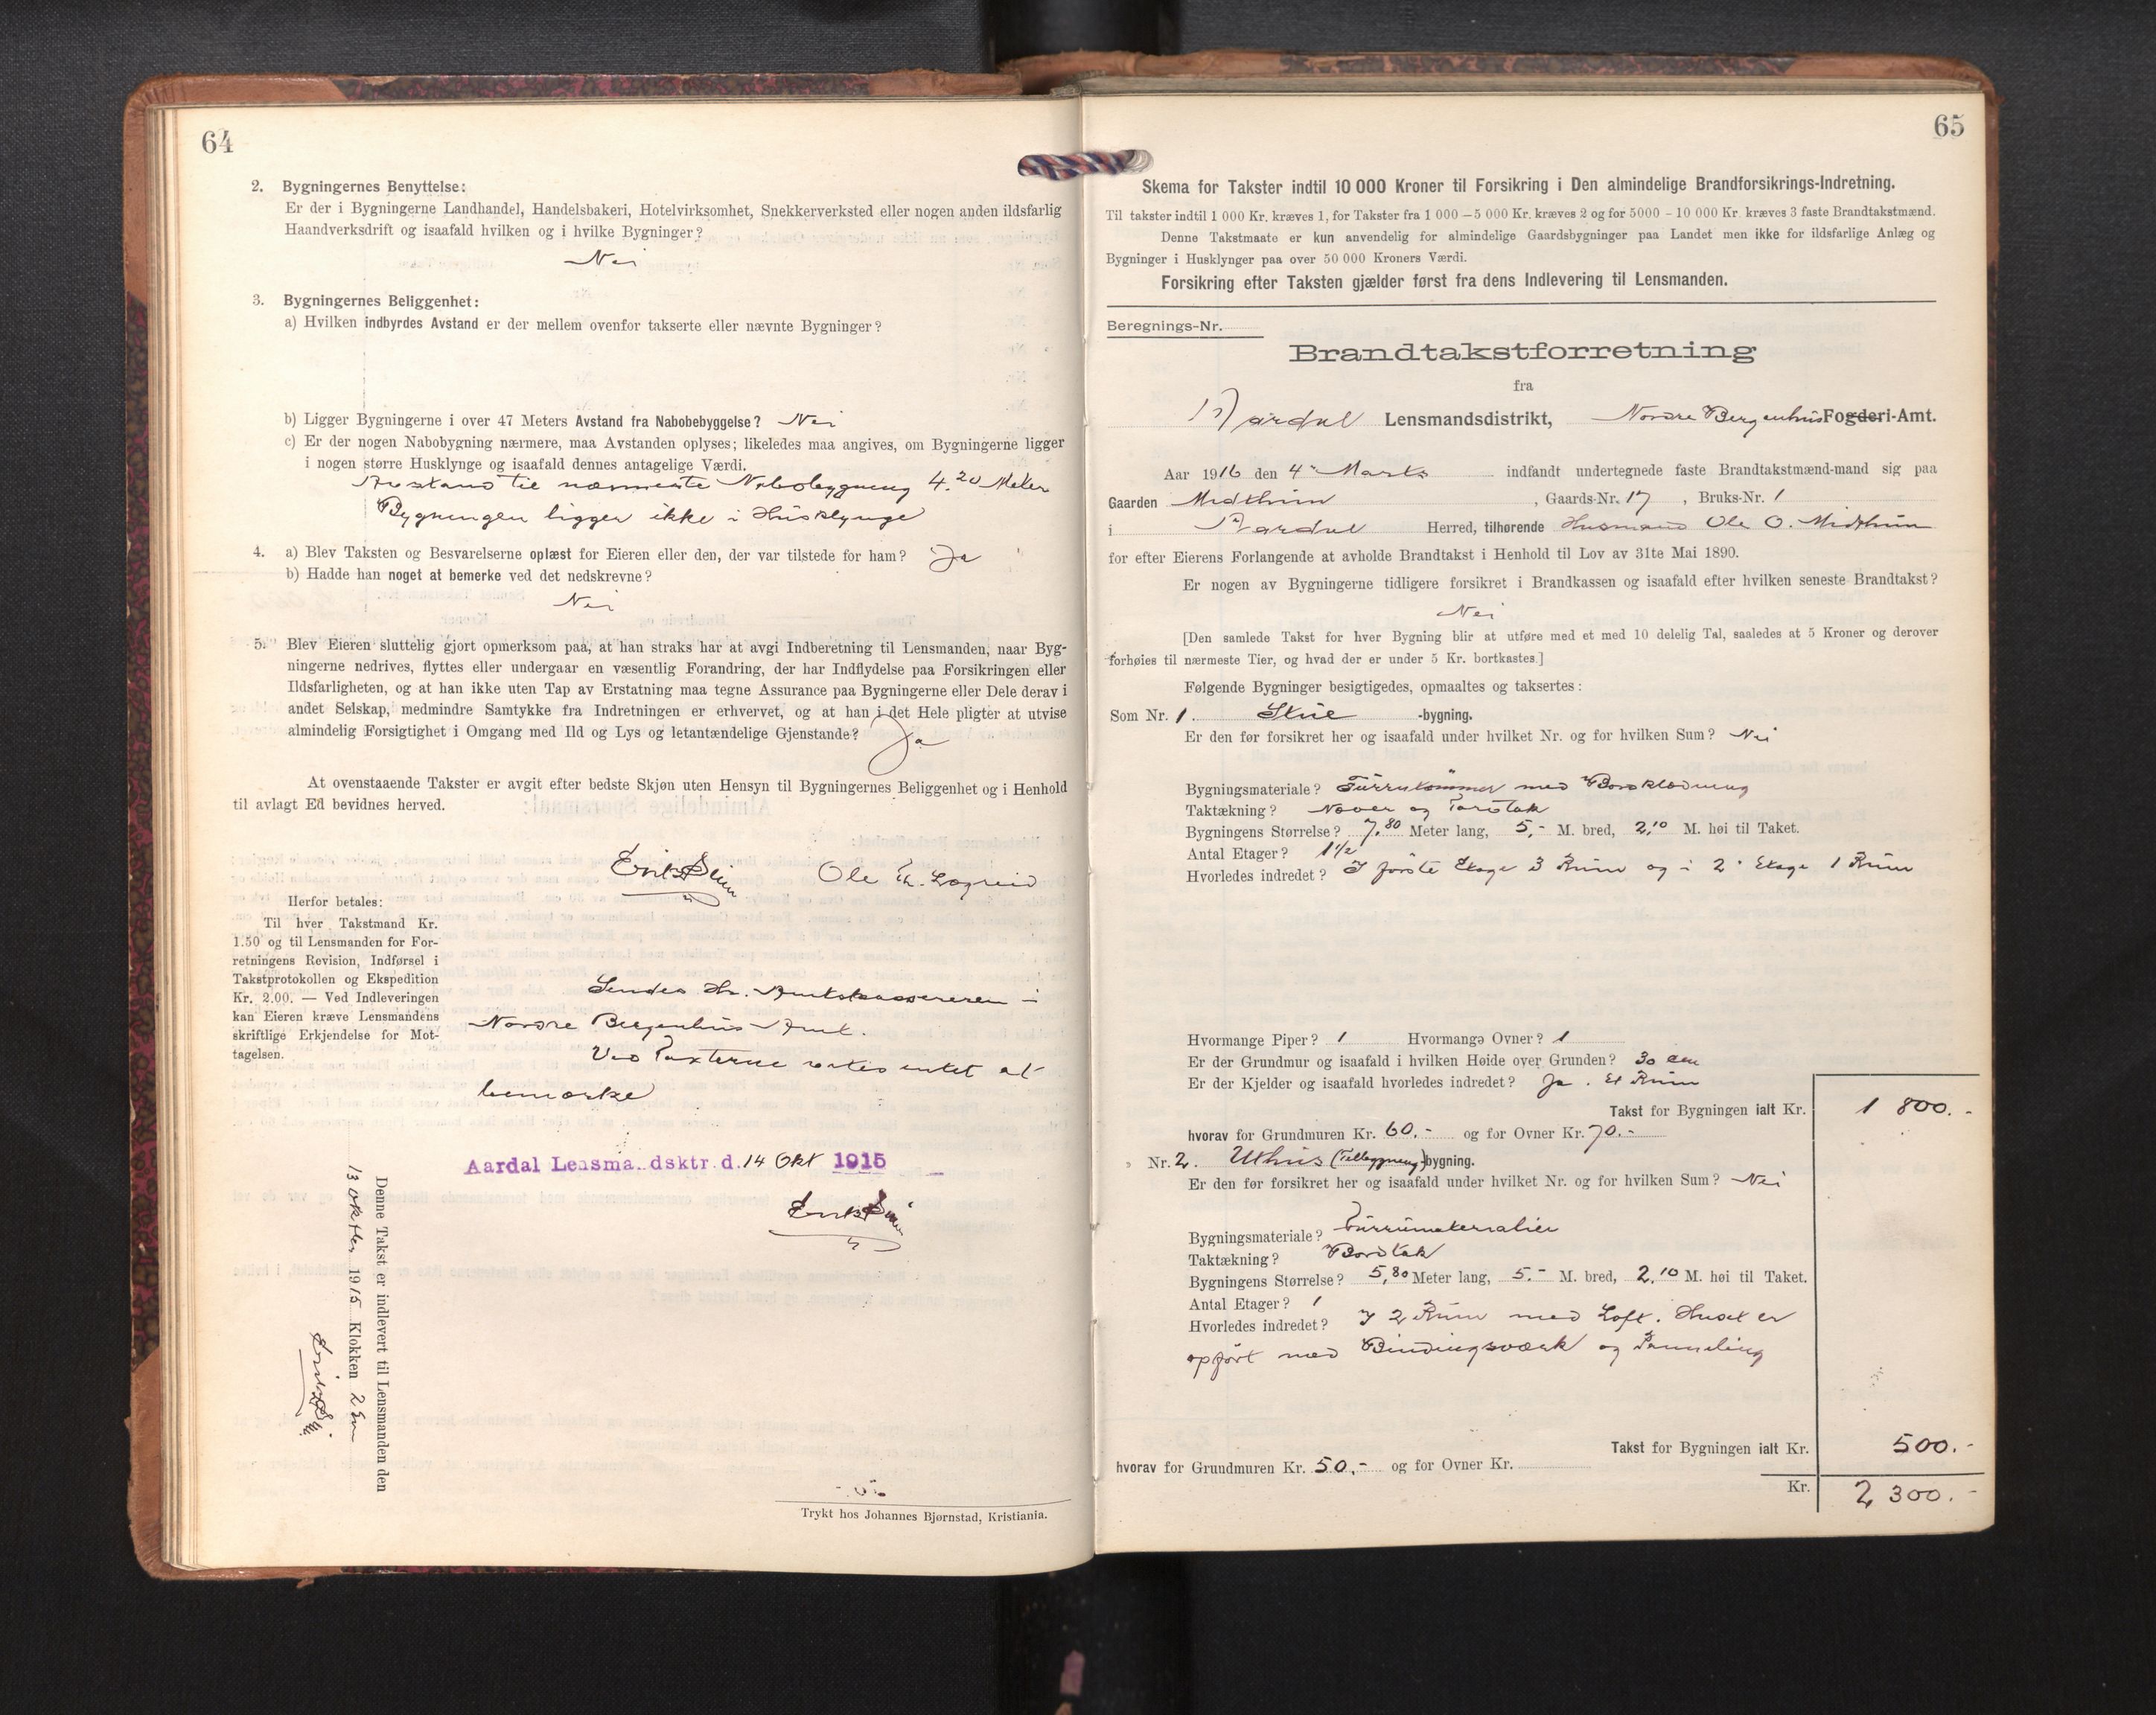 64
2. Bygningernes Benyttelse:
Er der i Bygningerne Landhandel, Handelsbakeri, Hotelvirksomhet, Snekkerverksted eller nogen anden ildsfarlig
Haandverksdrift og isaafald hvilken og i hvilke Bygninger?
Nei
3. Bygningernes Beliggenhet:
a) Hvilken indbyrdes Avstand er der mellem ovenfor takserte eller nævnte Bygninger?
b) Ligger Bygningerne i over 47 Meters Avstand fra Nabobebyggelse? Nei
c) Er der nogen Nabobygning nærmere, maa Avstanden oplyses; likeledes maa angives, om Bygningerne ligger
i nogen større Husklynge og isaafald dennes antagelige Værdi.
Avstand til nærmeste Nabobygning 4.20 Meter
Bygningen ligger ikke i Husklynge
4. a) Blev Taksten og Besvarelserne oplæst for Eieren eller den, der var tilstede for ham? Ja
b) Hadde han noget at bemerke ved det nedskrevne?
Nei
5. Blev Eieren sluttelig gjort opmerksom paa, at han straks har at avgi Indberetning til Lensmanden, naar Byg-
ningerne nedrives, flyttes eller undergaar en væsentlig Forandring, der har Indflydelse paa Forsikringen eller
Ildsfarligheten, og at han ikke uten Tap av Erstatning maa tegne Assurance paa Bygningerne eller Dele derav i
andet Selskap, medmindre Samtykke fra Indretningen er erhvervet, og at han i det Hele pligter at utvise
almindelig Forsigtighet i Omgang med Ild og Lys og letantændelige Gjenstande? Ja
At ovenstaaende Takster er avgit efter bedste Skjøn uten Hensyn til Bygningernes Beliggenhet og i Henhold
til avlagt Ed bevidnes herved.
Ole Th. Lægreid
Herfor betales:
Til hver Takstmand Kr.
1.50 og til Lensmanden for For-
retningens Revision, Indførsel i
Takstprotokollen og Ekspedition
Kr. 2.00. — Ved Indleveringen
kan Eieren kræve Lensmandens
skriftlige Erkjendelse for Mot-
tagelsen.
Sendes Hr. Amtskassereren i
Nordre Bergenhus Amt.
Ved Taxterne vides intet at
bemærke
Aardal Lensma dsktr. d. 14 Okt 1915
Denne Takst er indlevert til Lensmanden den
13 oktbr 1915 Klokken 2 Em
Trykt hos Johannes Bjørnstad, Kristiania.
65
Skema for Takster indtil 10 000 Kroner til Forsikring i Den almindelige Brandforsikrings-Indretning.
Til takster indtil 1 000 Kr. kræves 1, for Takster fra 1 000 – 5 000 Kr. kræves 2 og for 5000 – 10 000 Kr. kræves 3 faste Brandtakstmænd.
Denne Takstmaate er kun anvendelig for almindelige Gaardsbygninger paa Landet men ikke for ildsfarlige Anlæg og
Bygninger i Husklynger paa over 50 000 Kroners Værdi.
Forsikring efter Taksten gjælder først fra dens Indlevering til Lensmanden.
Beregnings-Nr.
Brandtakstforretning
fra
Aardal Lensmandsdistrikt, Nordre Bergenhus Fogderi-Amt.
Aar 1916 den 4 Marts indfandt undertegnede faste Brandtakstmænd-mand sig paa
Gaarden Midthun, Gaards-Nr. 17, Bruks-Nr. 1
i Aardal Herred, tilhørende Husmand Ole O. Midthun
for efter Eierens Forlangende at avholde Brandtakst i Henhold til Lov av 31te Mai 1890.
Er nogen av Bygningerne tidligere forsikret i Brandkassen og isaafald efter hvilken seneste Brandtakst?
Nei
[Den samlede Takst for hver Bygning blir at utføre med et med 10 delelig Tal, saaledes at 5 Kroner og derover
forhøies til nærmeste Tier, og hvad der er under 5 Kr. bortkastes.]
Følgende Bygninger besigtigedes, opmaaltes og taksertes:
Som Nr. 1. Stue -bygning.
Er den før forsikret her og isaafald under hvilket Nr. og for hvilken Sum? Nei
Bygningsmateriale? Furrutømmer med Bordklædning
Taktækning? Næver og Torvtak
Bygningens Størrelse? 7,80 Meter lang, 5,- M. bred, 2,10 M. høi til Taket.
Antal Etager? 1 1/2
Hvorledes indredet? I første Etage 3 Rum og i 2 Etage 1 Rum
Hvormange Piper? 1 Hvormange Ovner? 1
Er der Grundmur og isaafald i hvilken Høide over Grunden? 30 cm
Er der Kjelder og isaafald hvorledes indredet? Ja. Et Rum
Takst for Bygningen ialt Kr. 1 800.-
hvorav for Grundmuren Kr. 60.- og for Ovner Kr. 70.-
Nr. 2. Uthus (Tilbygning) bygning.
Er den før forsikret her og isaafald under hvilket Nr. og for hvilken Sum? Nei
Bygningsmateriale? Furrumaterialier
Taktækning? Bordtak
Bygningens Størrelse? 5,80 Meter lang, 5.- M. bred, 2,10 M. høi til Taket.
Antal Etager? 1
Hvorledes indredet? I 2 Rum med Loft. Huset er
opført med Bindingsværk og Panneling
Takst for Bygningen ialt Kr. 500.-
hvorav for Grundmuren Kr. 50.- og for Ovner Kr.
Kr. 2 300.-